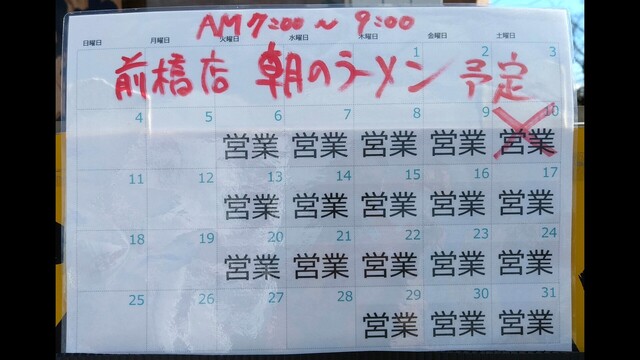 AM7:00~9:00
日曜日 月曜日 火曜日 水曜日 木曜日 金曜日 土曜日
1 2 3
前橋店 朝のラーメン 予定
4 5 6 7 8 9 10
営業 営業 営業 営業 営業
11 12 13 14 15 16 17
営業 営業 営業 営業 営業
18 19 20 21 22 23 24
営業 営業 営業 営業 営業
25 26 27 28 29 30 31
営業 営業 営業